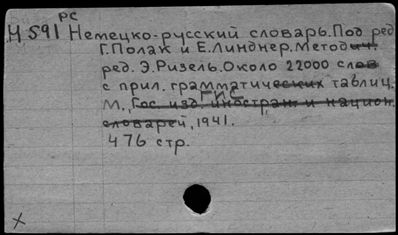 РС
Н 591 Немецко-русский словарь. Под ред.
Г. Полак и Е. Линднер. Методич.
ред. Э. Ризель. Около 22000 слов
с прил. грамматических таблиц.
ГИС
М., Гос. изд. иностран. и национ.
словарей, 1941.
476 стр.